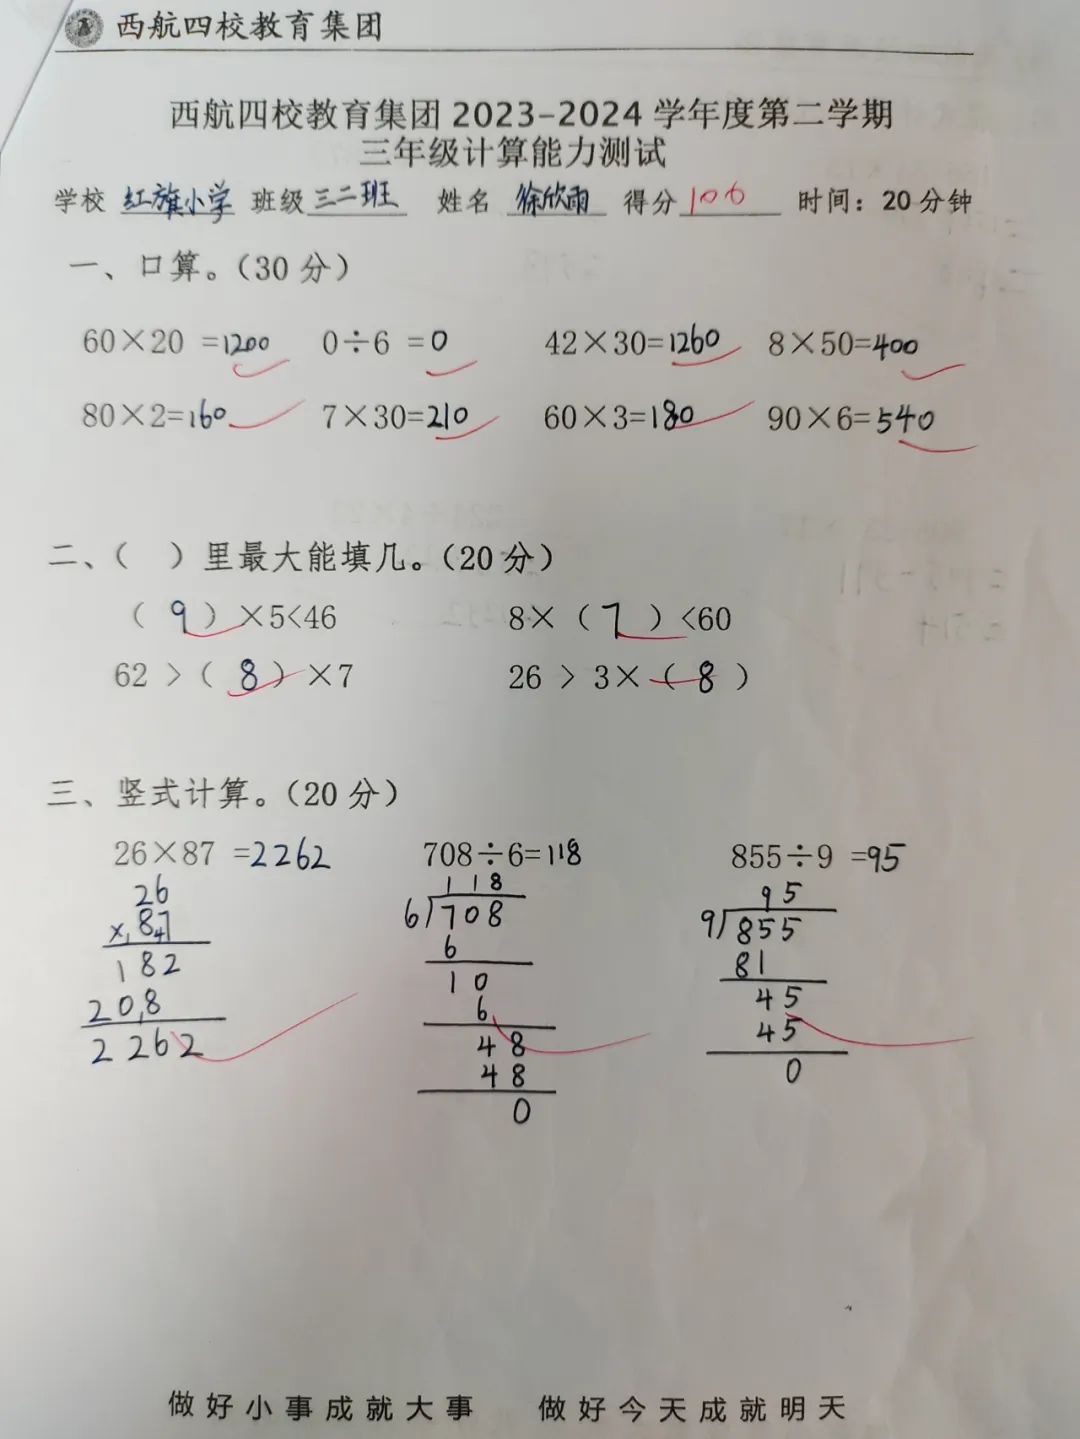 西航四校教育集团
西航四校教育集团 2023-2024 学年度第二学期
三年级计算能力测试
学校 红旗小学 班级 三二班 姓名 徐欣雨 得分 100 时间：20 分钟
一、口算。（30 分）
60×20 =1200 0÷6 =0 42×30=1260 8×50=400
80×2=160 7×30=210 60×3=180 90×6=540
二、（ ）里最大能填几。（20 分）
（ 9 ）×5<46 8×（ 7 ）<60
62 >（ 8 ）×7 26 > 3×（ 8 ）
三、竖式计算。（20 分）
26×87 =2262 708÷6=118 855÷9 =95
26
×87
4
182
208
2262
118
6)708
6
10
6
48
48
0
95
9)855
81
45
45
0
做好小事成就大事 做好今天成就明天